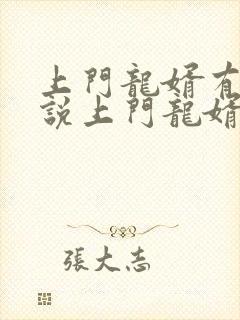 上門龍婿有
說上門龍婿
張大志